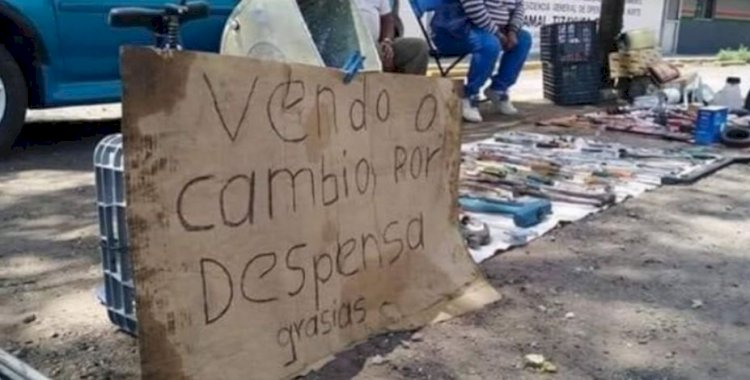 Vendo o
cambio por
Despensa
grasias